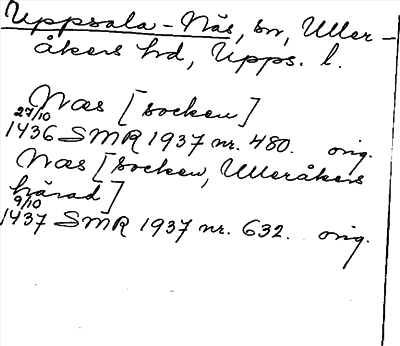 Uppsala-Näs, sn, Uller-
åkers hd, Upps. l.
Næs [socken]
27/10
1436 SMR 1937 nr. 480. orig.
Næs [socken, Ulleråkers
härad]
9/10
1437 SMR 1937 nr. 632. orig.